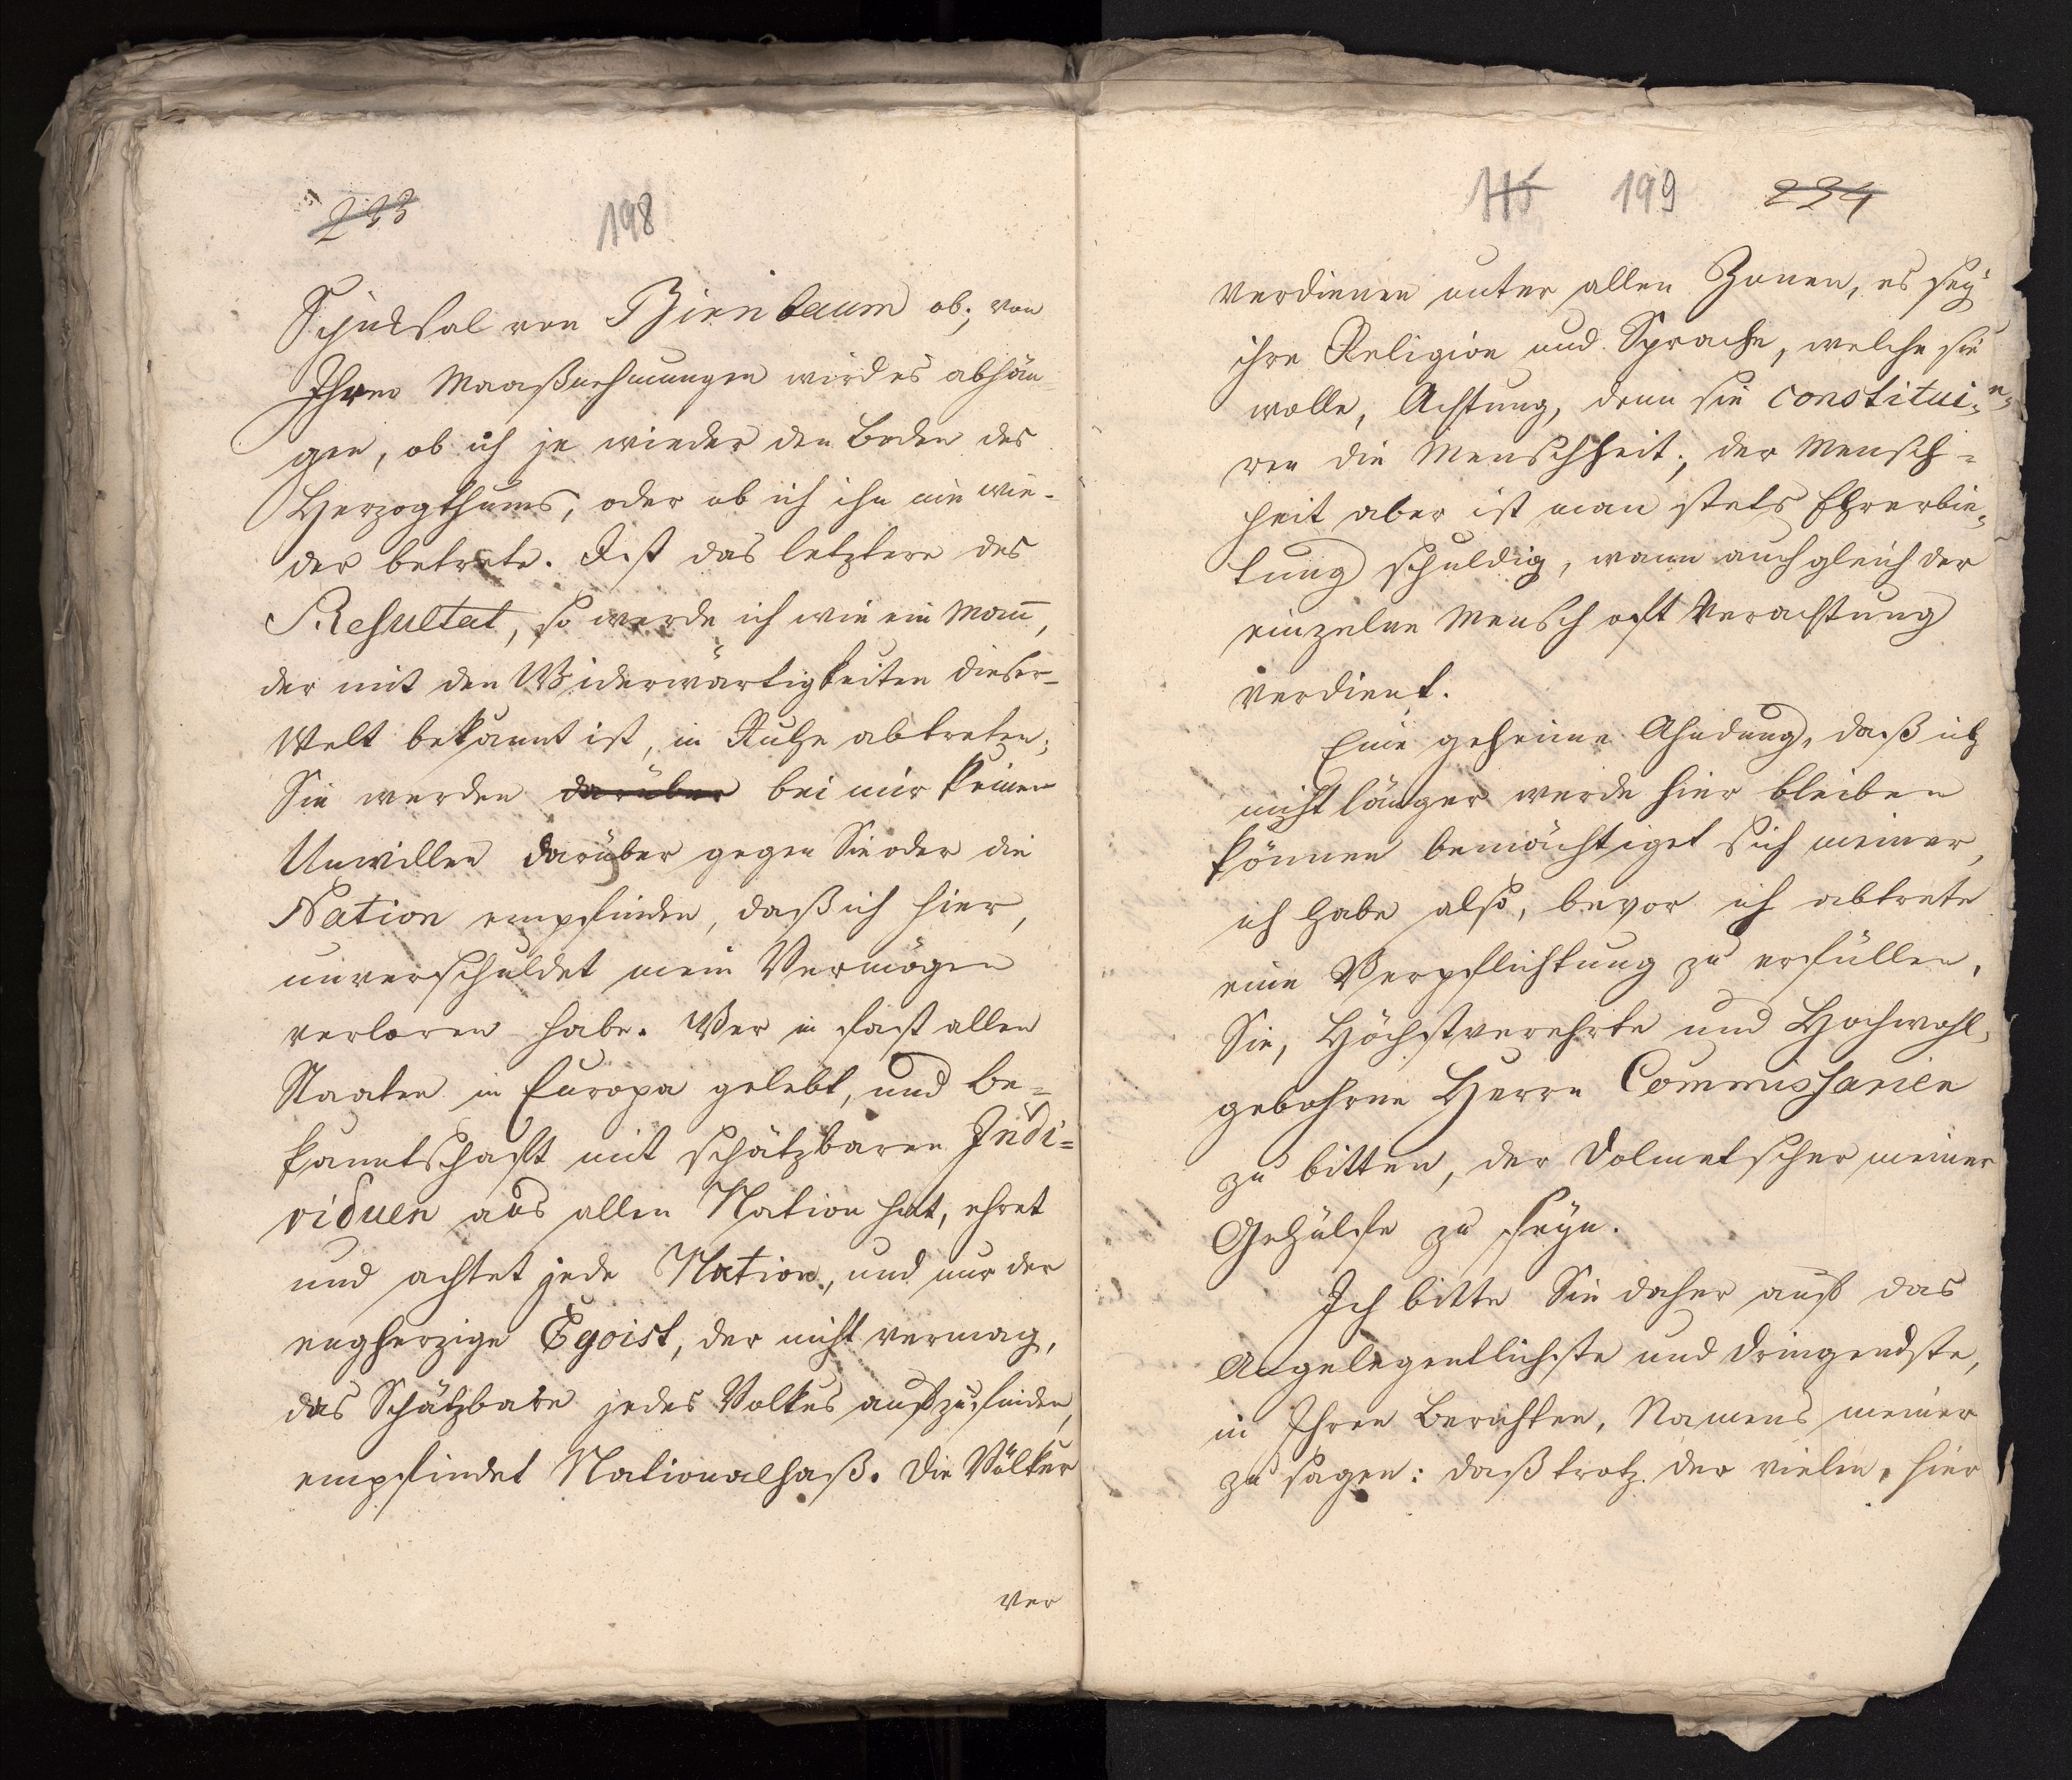 233 198
Schicksal von Bienbaum ob; von
Ihren Maaßnehmungen wird es abhän
gen, ob ich je wieder den Boden des
Herzogthums, oder ob ich ihn nie wie-
der betrete. Ist das letztere das
Resultat, so werde ich wie ein Mañ,
der mit den Widerwärtigkeiten dieser
Welt bekannt ist, in Ruhe abtreten;
Sie werden darüber bei mir keinen
Unwillen darüber gegen Sie oder die
Nation empfinden, daß ich hier,
unverschuldet mein Vermögen
verloren habe. Wer in fast allen
Staaten in Europa gelebt, und Be-
kanntschaft mit schätzbaren Indi-
viduen aus allen Nation hat, ehret
und achtet jede Nation, und nur der
engherzige Egoist, der nicht vermag,
das Schätzbare jedes Volkes aufzufinden,
empfindet Nationalhaß. Die Völker
ver
115 199 234
verdienen unter allen Zonen, es sey
ihre Religion und Sprache, welche sie
wolle, Achtung, denn sie constitui-
ren die Menschheit; der Mensch-
heit aber ist man stets Ehrerbie-
tung schuldig, wann auch gleich der
einzelne Mensch oft Verachtung
verdient.
Eine geheime Ahndung, daß ich
nicht länger werde hier bleiben
können bemächtiget sich meiner,
ich habe also, bevor ich abtrete
eine Verpflichtung zu erfüllen,
Sie, Höchstverehrte und Hochwohl-
gebohrne Herrn Commissarien
zu bitten, der Dolmetscher meiner
Gefühle zu seyn.
Ich bitte Sie daher auf das
Angelegentlichste und Dringendste,
in Ihren Berichten, Namens meiner
zu sagen: daß trotz der vielen, hier